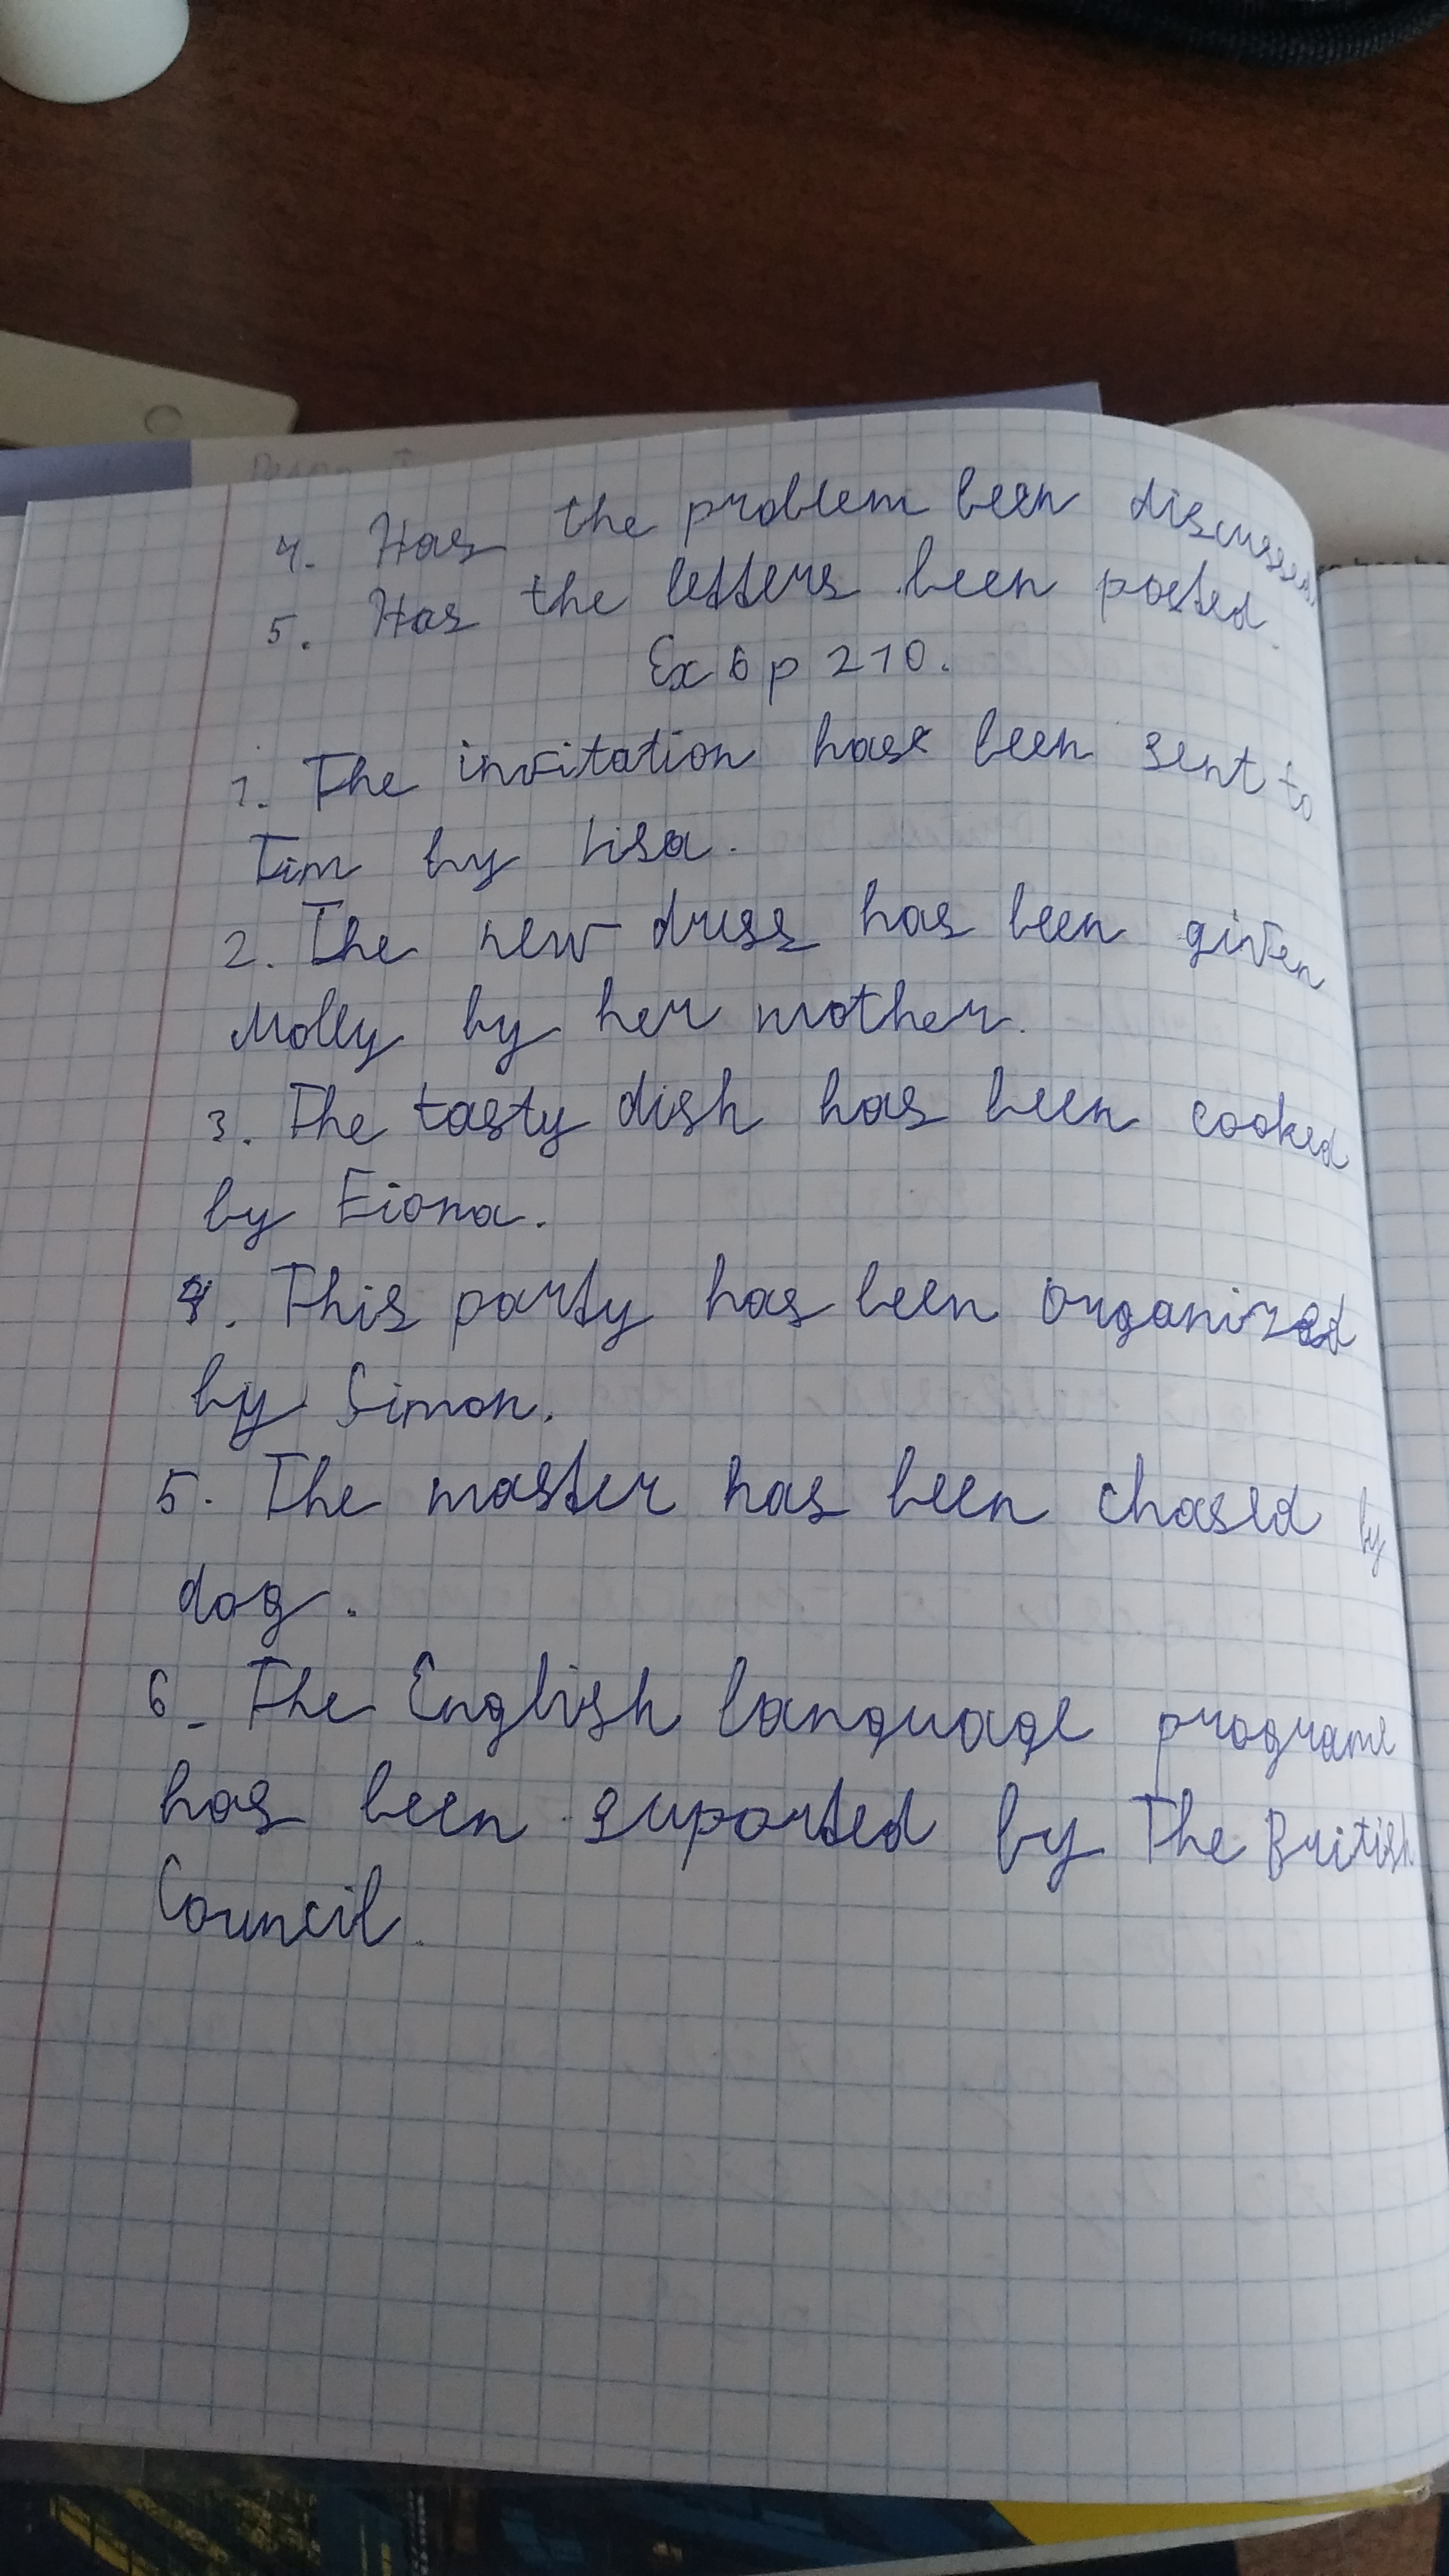 4. Has the problem been discussed.
5. Has the letters been posted.
Ex 6 p 210.
1. The invitation has been sent to
Tim by Lisa.
2. The new dress has been given
Molly by her mother.
3. The tasty dish has been cooked
by Fiona.
4. This party has been organized
by Simon.
5. The master has been chased by
dog.
6. The English language programe
has been suported by The British
Council.